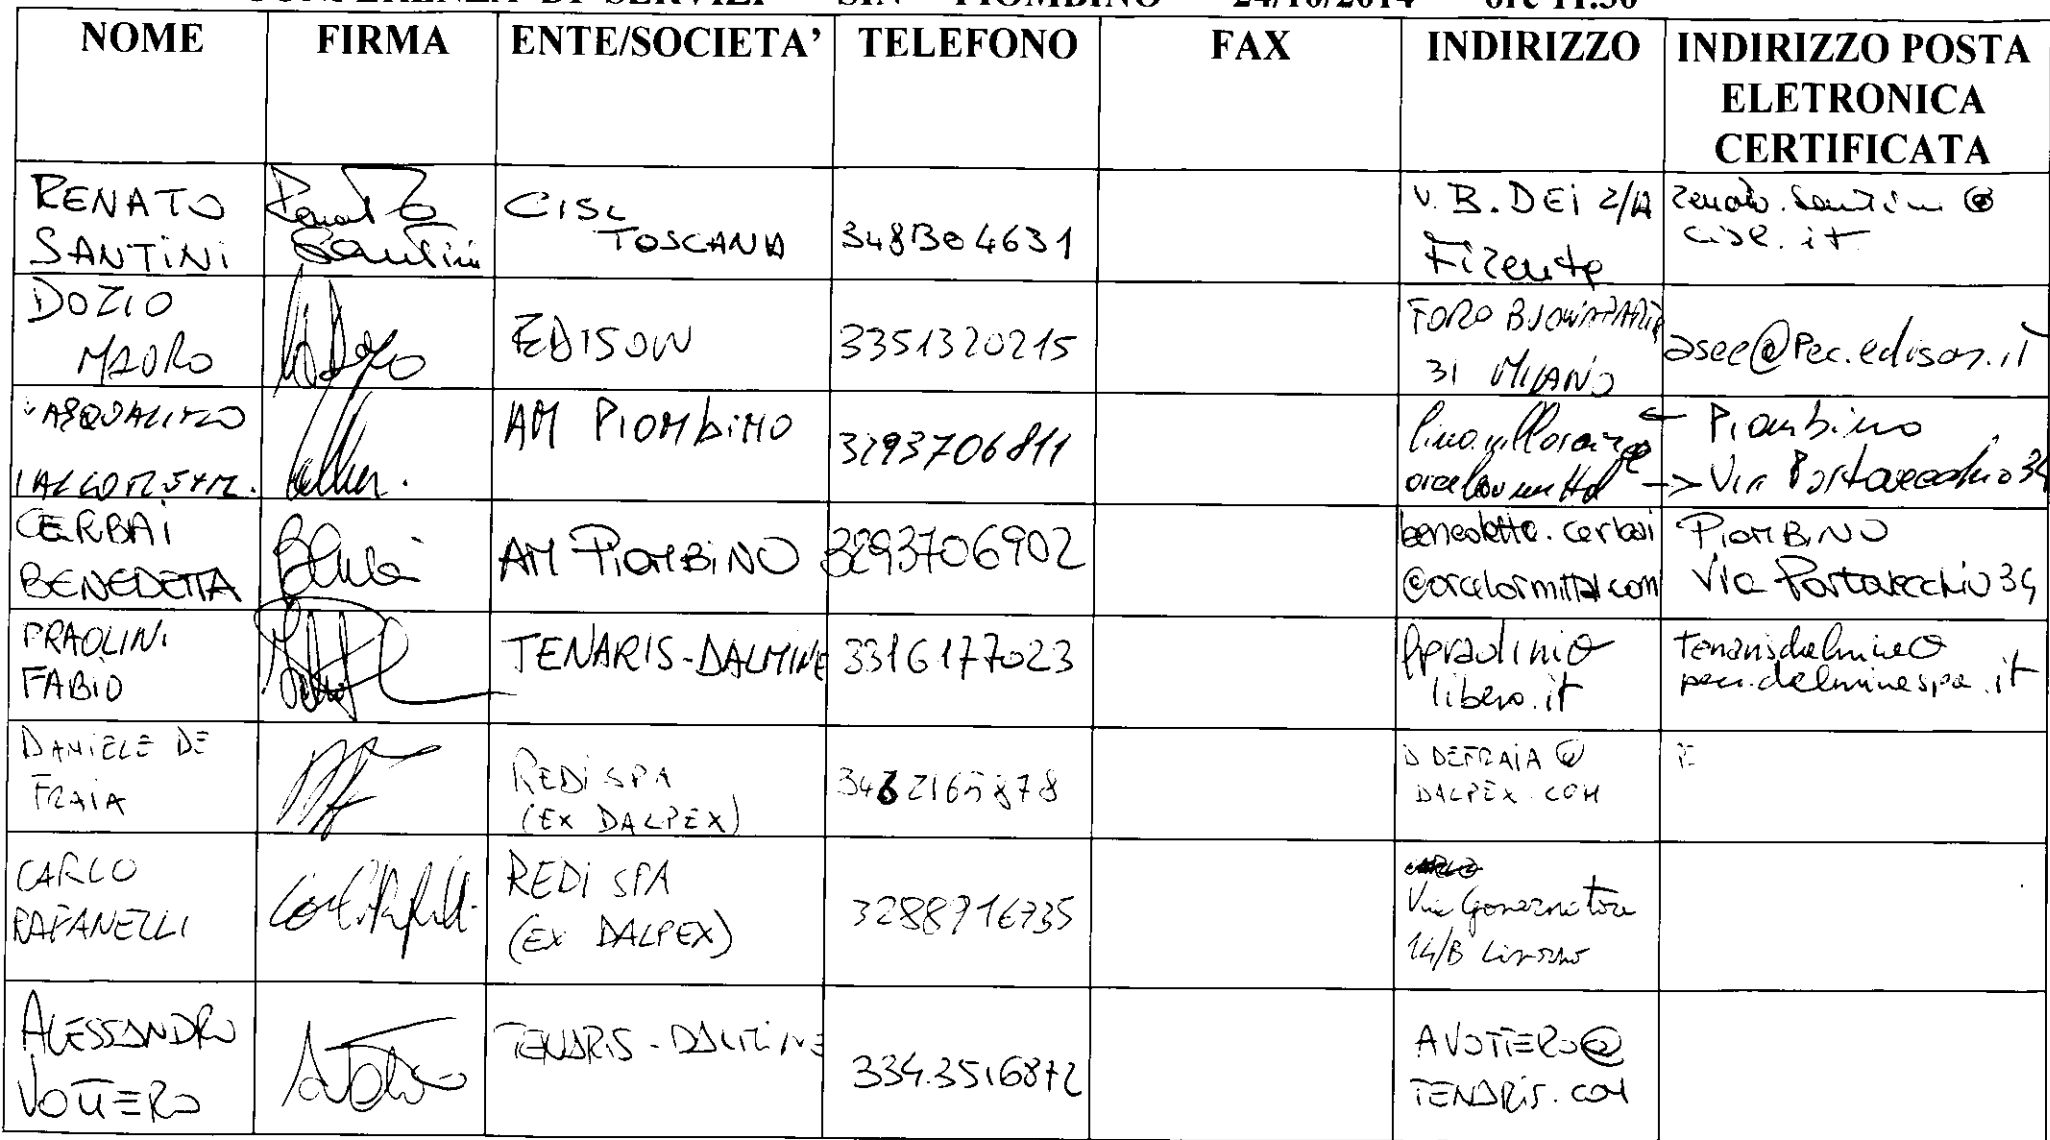 CONFERENZA DI SERVIZI SIN PIOMBINO 24/10/2014 ore 11.30
NOME FIRMA ENTE/SOCIETA' TELEFONO FAX INDIRIZZO INDIRIZZO POSTA
ELETRONICA
CERTIFICATA
RENATO
SANTINI
Renato
Santini
CISL
TOSCANA
3481304631
V. B. DEI 2/A
Firenze
renato.santini @
cisl.it
DOZIO
MAURO
EDISON
3351320215
FORO BUONAPARTE
31 MILANO
asee@pec.edison.it
AM PIOMBINO
3293706811
← Piombino
→ Via Portovecchio 34
CERBAI
BENEDETTA
AM PIOMBINO
3293706902
benedetta.cerbai
@arcelormittal.com
PIOMBINO
Via Portovecchio 34
PRAOLINI
FABIO
TENARIS-DALMINE
3316177023
fpraolini@
libero.it
tenarisdalmine@
pec.dalminespa.it
DANIELE DE
FRAIA
REDI SPA
(EX DALPEX)
D DEFRAIA @
DALPEX.COM
CARLO
RAFANELLI
REDI SPA
(EX DALPEX)
3288916735
Via
14/B Livorno
ALESSANDRO
VOTTERO
TENARIS-DALMINE
334.3516872
AVOTTERO@
TENARIS.COM